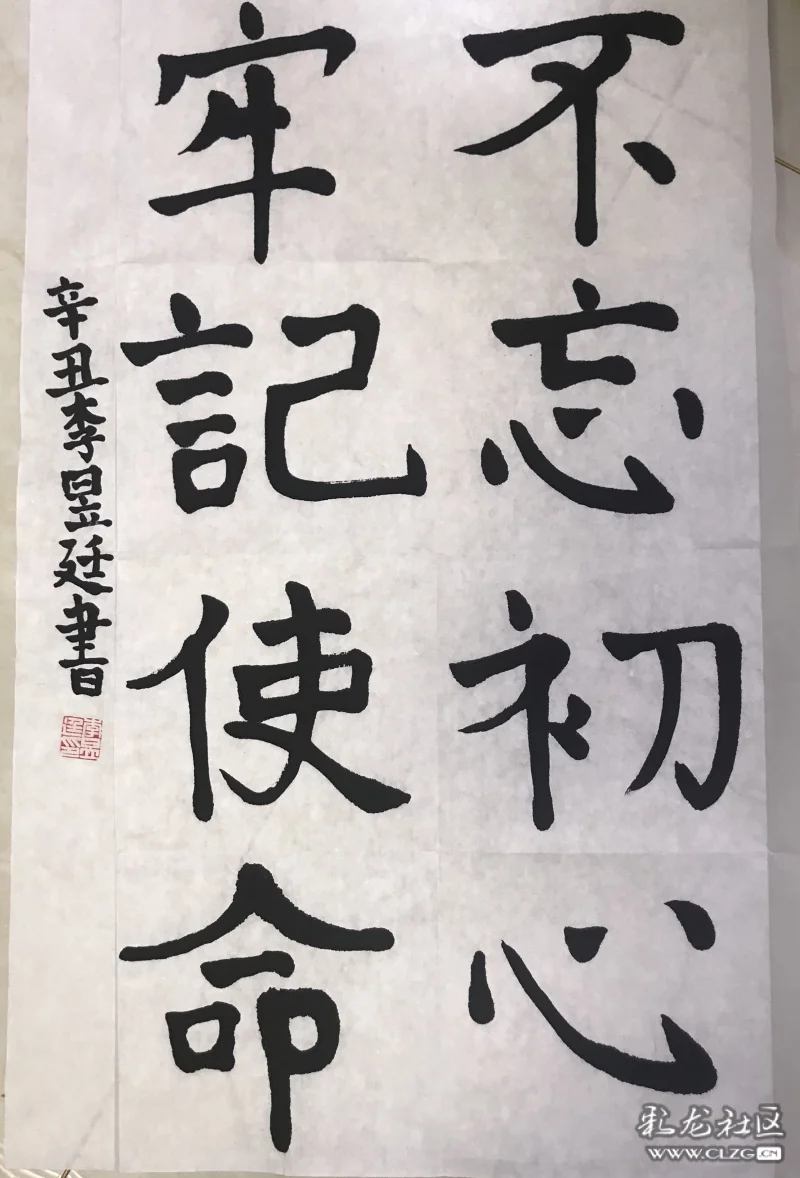 不忘初心
牢記使命
辛丑李昱廷書
彩龙社区
WWW.CLZG.CN